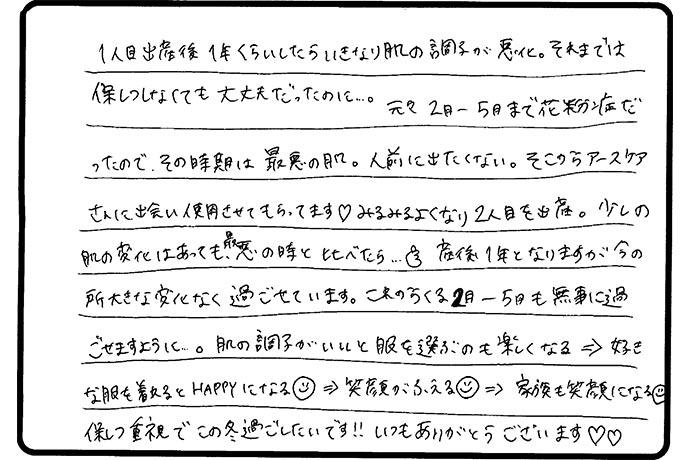 1人目出産後 1年くらいしたらいきなり肌の調子が悪化。それまでは
保しつしなくても大丈夫だったのに…。 元々2月ー5月まで花粉症だ
ったので、その時期は最悪の肌。人前に出たくない。そこからアースケア
さんに出会い使用させてもらってます♡みるみるよくなり2人目を出産。少しの
肌の変化はあっても、最悪の時と比べたら… 産後1年となりますが今の
所大きな変化なく過ごせています。これからくる2月ー5月も無事に過
ごせますように…。肌の調子がいいと服を選ぶのも楽しくなる⇒好き
な服を着るとHAPPYになる☺⇒笑顔がふえる☺⇒家族も笑顔になる☺
保しつ重視でこの冬過ごしたいです!!いつもありがとうございます♡♡